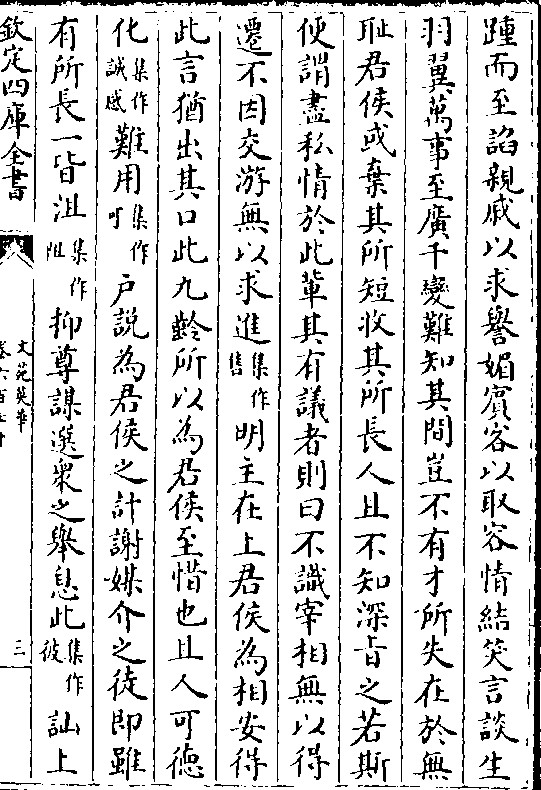 踵而至諂親戚以求譽媚賓客以取容情結笑言談生
羽翼萬事至廣千變難知其間豈不有才所失在於無
耻君侯或棄其所短收其所長人且不知深旨之若斯
便謂盡私情於此輩其有議者則曰不識宰相無以得
遷不因交游無以求進集作售明主在上君侯為相安得
此言猶出其口此九齡所以為君侯至惜也且人可德
化集作誠感難用集作可戶說為君侯之計謝媒介之徒即雖
有所長一皆沮集作阻抑尊謀選衆之舉息此集作彼訕上
欽定四庫全書
文苑英華
三